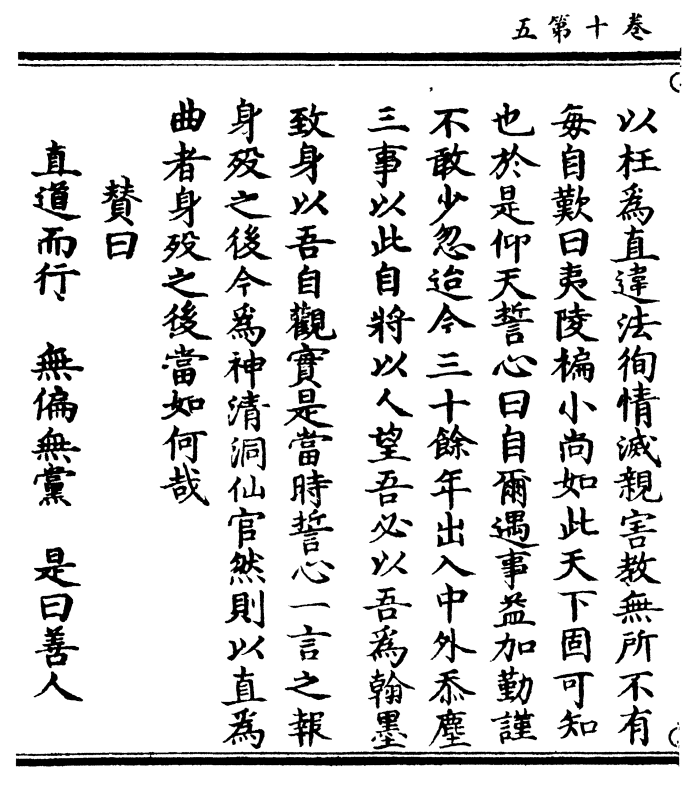 卷十第五
以枉爲直違法徇情滅親害教無所不有
每自歎曰夷陵楄小尚如此天下固可知
也於是仰天誓心曰自爾遇事益加勤謹
不敢少忽迨今三十餘年出入中外忝塵
三事以此自將以人望吾必以吾爲翰墨
致身以吾自觀實是當時誓心一言之報
身殁之後今爲神清洞仙官然則以直爲
曲者身殁之後當如何哉
賛曰
直道而行 無偏無黨 是曰善人